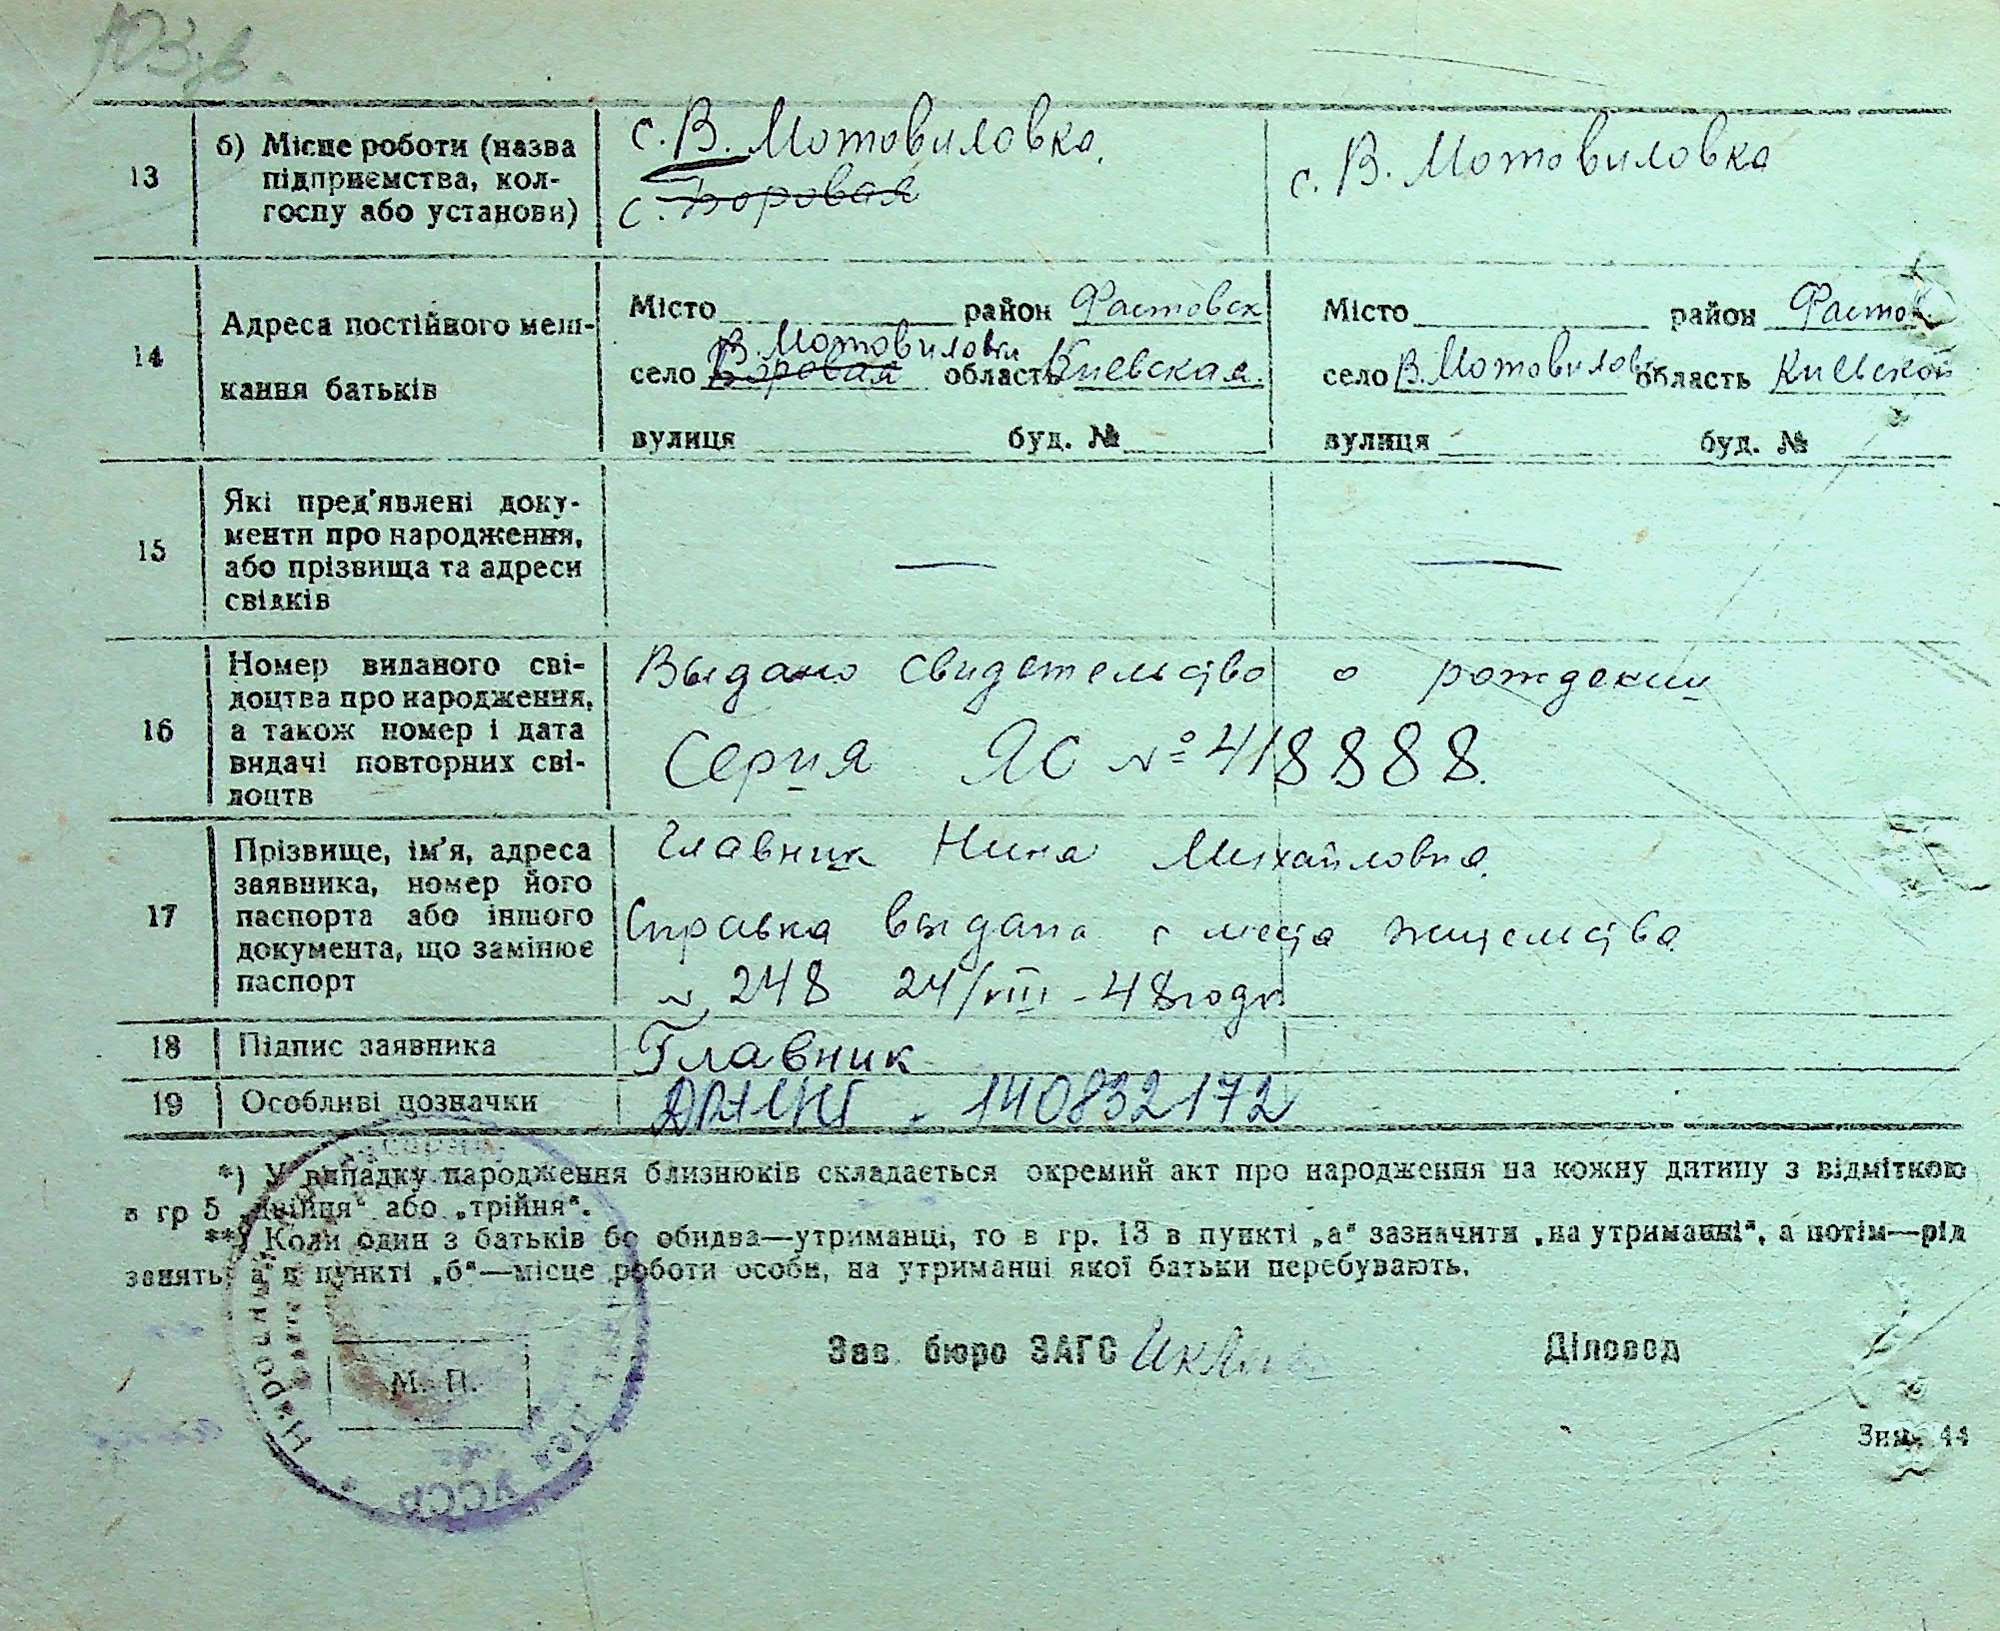 103 зв.
13
б) Місце роботи (назва
підприємства, кол-
госпу або установи)
с. В. Мотовиловка.
с. Боровая
с. В. Мотовиловка
14
Адреса постійного меш-
кання батьків
Місто район Фастовск
село Боровая В. Мотовиловки область Киевская.
вулиця буд. №
Місто район Фастов
село В. Мотовиловк область Киевской
вулиця буд. №
15
Які пред'явлені доку-
менти про народження,
або прізвища та адреси
свідків
—
—
16
Номер виданого сві-
доцтва про народження,
а також номер і дата
видачі повторних сві-
доцтв
Выдано свидетельство о рождении
Серия ЯС № 418888.
17
Прізвище, ім'я, адреса
заявника, номер його
паспорта або іншого
документа, що замінює
паспорт
Главник Нина Михайловна.
Справка выдана с места жительства
№ 248 24/VIII - 48 года
18
Підпис заявника
Главник
19
Особливі позначки
140832172
*) У випадку народження близнюків складається окремий акт про народження на кожну дитину з відміткою
в гр 5 „двійня“ або „трійня“.
**) Коли один з батьків бо обидва—утриманці, то в гр. 13 в пункті „а“ зазначити „на утриманні“, а потім—рід
занять, а в пункті „б“—місце роботи особи, на утриманні якої батьки перебувають.
М. П.
Зав. бюро ЗАГС
Діловод
Зям. 44